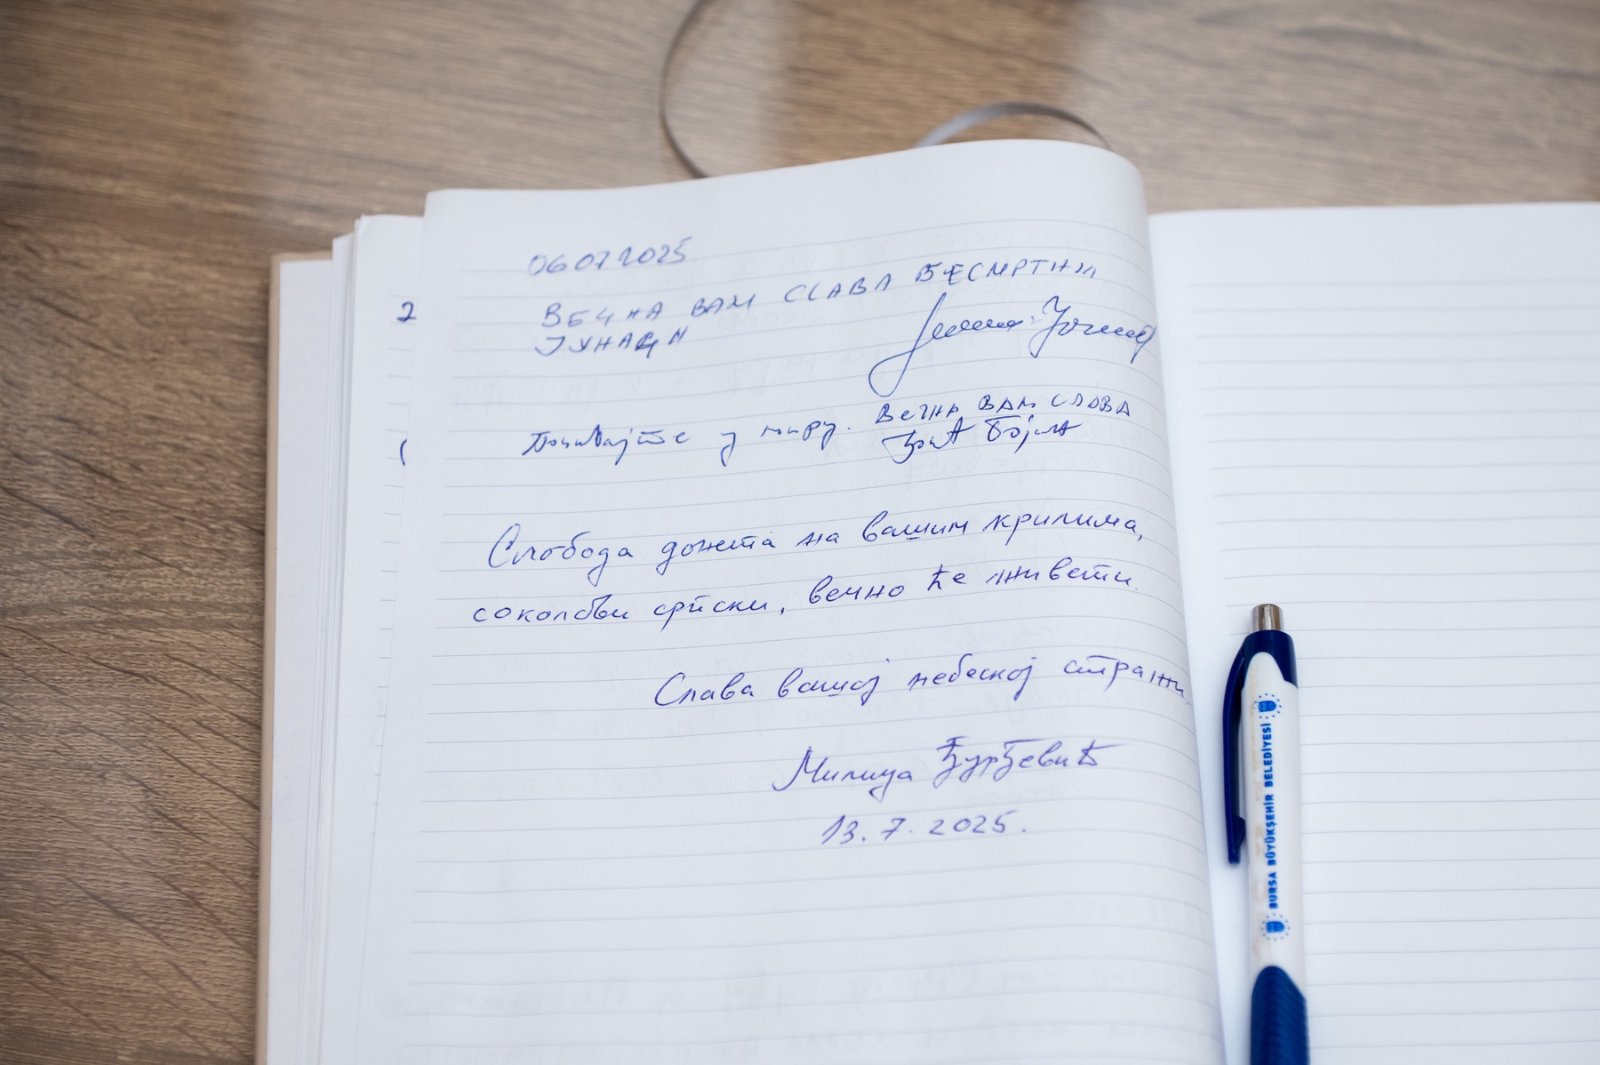 06072025
ВЕЧНА ВАМ СЛАВА БЕСМРТНИ
ЈУНАЦИ
Почивајте у миру. ВЕЧНА ВАМ СЛАВА
Слобода донета на вашим крилима,
соколови српски, вечно ће живети.
Слава вашој небеској стражи
Милица Ђурђевић
13.7.2025.
BURSA BÜYÜKŞEHİR BELEDİYESİ